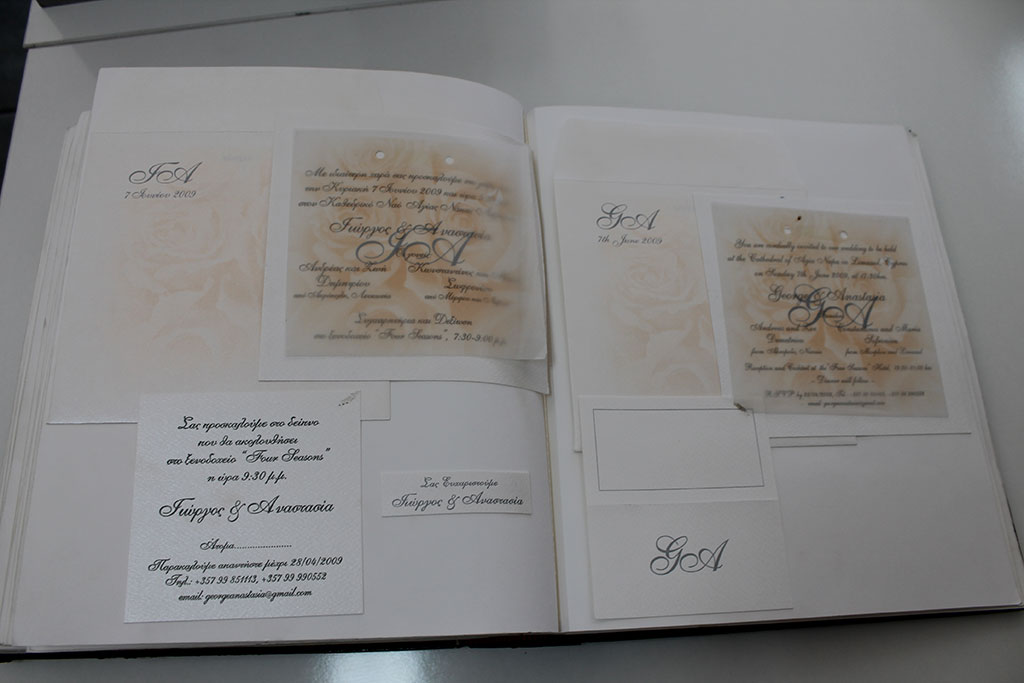 ΓΑ
7 Ιουνίου 2009
Με ιδιαίτερη χαρά σας προσκαλούμε στο
την Κυριακή 7 Ιουνίου 2009 και ώρα
στον Καθεδρικό Ναό Αγίας Νάπας
Γιώργος & Αναστασία
ΓΑ
Ανδρέας και Ζωή
Δημητρίου
Κωνσταντίνος και
από Λευκωσία
από Μόρφου και
Συγχαρητήρια και Δεξίωση
στο ξενοδοχείο "Four Seasons", 7:30-9:00 μ.μ.
Σας προσκαλούμε στο δείπνο
που θα ακολουθήσει
στο ξενοδοχείο "Four Seasons"
η ώρα 9:30 μ.μ.
Γιώργος & Αναστασία
Άτομα......................
Παρακαλούμε απαντήστε μέχρι 28/04/2009
Τηλ.: +357 99 851113, +357 99 990552
email: georgeanastasia@gmail.com
Σας Ευχαριστούμε
Γιώργος & Αναστασία
GA
7th June 2009
You are cordially invited to our wedding to be held
at the Cathedral of Agia Napa in Limassol, Cyprus
on Sunday 7th June 2009, at
George & Anastasia
GA
Andreas and Zoe
Demetriou
Constantinos and Maria
from
from Morphou and Limassol
Reception and Cocktail at the "Four Seasons" Hotel,
- Dinner will follow -
R.S.V.P. by
email: georgeanastasia@gmail.com
GA